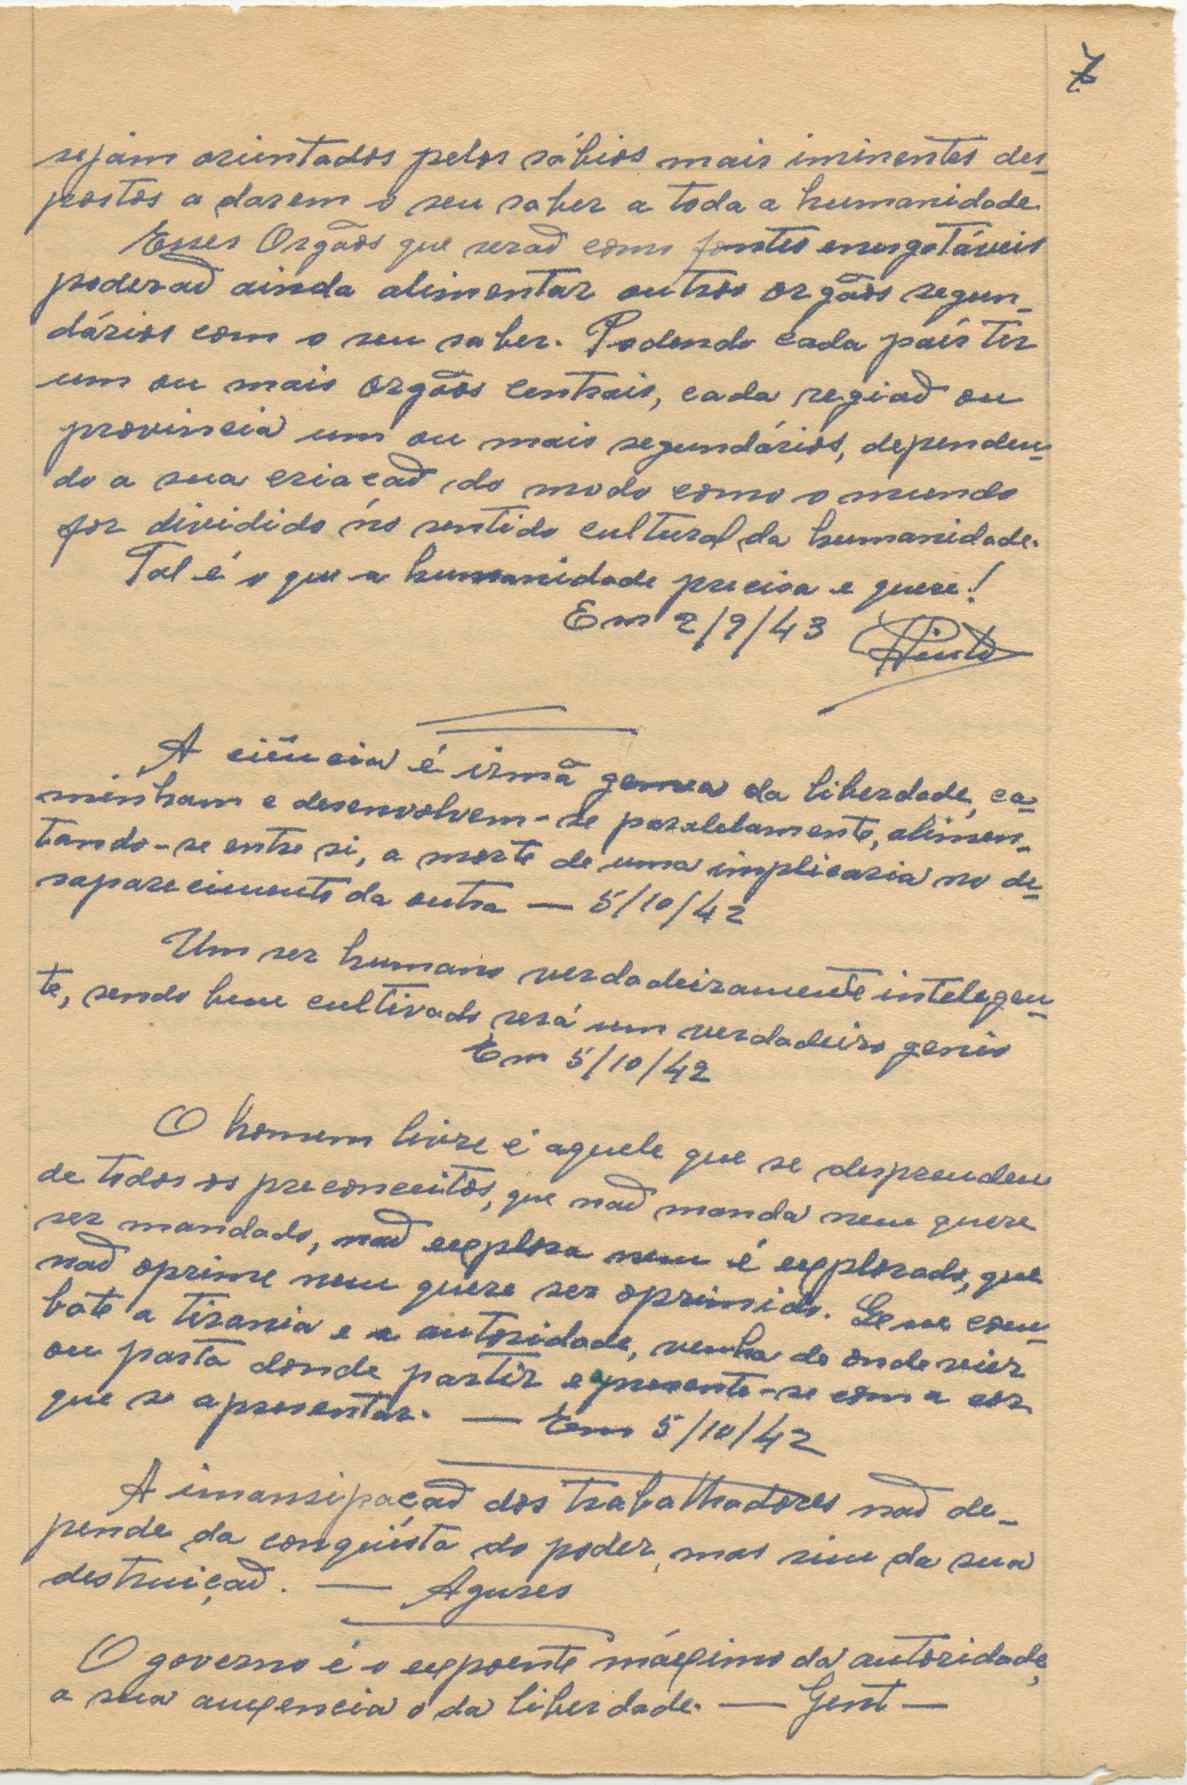 7
sejam orientados pelos sábios mais iminentes des-
postos a darem o seu saber a toda a humanidade.
Esses Orgãos que serão como fontes enesgotáveis
poderão ainda alimentar outros orgãos segun-
dários com o seu saber. Podendo cada país ter
um ou mais orgãos centrais, cada região ou
provincia um ou mais segundários, dependen-
do a sua criação do modo como o mundo
for dividido no sentido cultural da humanidade.
Tal é o que a humanidade precisa e quere!
Em 2/9/43 Pinto
A ciência é irmã gemea da liberdade, ca-
minham e desenvolvem-se paralelamente, alimen-
tando-se entre si, a morte de uma implicaria no de-
saparecimento da outra — 5/10/42
Um ser humano verdadeiramente intelegen-
te, sendo bem cultivado, será um verdadeiro genio
Em 5/10/42
O homem livre é aquele que se desprendeu
de todos os preconceitos, que não manda nem quere
ser mandado, não explora nem é explorado, que
não oprime nem quere ser oprimido. Que com-
bate a tirania e a autoridade, venha de onde vier
ou parta donde partir e apresente-se com a cor
que se apresentar. — Em 5/10/42
A imansipação dos trabalhadores não de-
pende da conquista do poder, mas sim da sua
destruição. — Agures
O governo é o expoente máximo da autoridade,
a sua auxencia o da liberdade. — Gent —